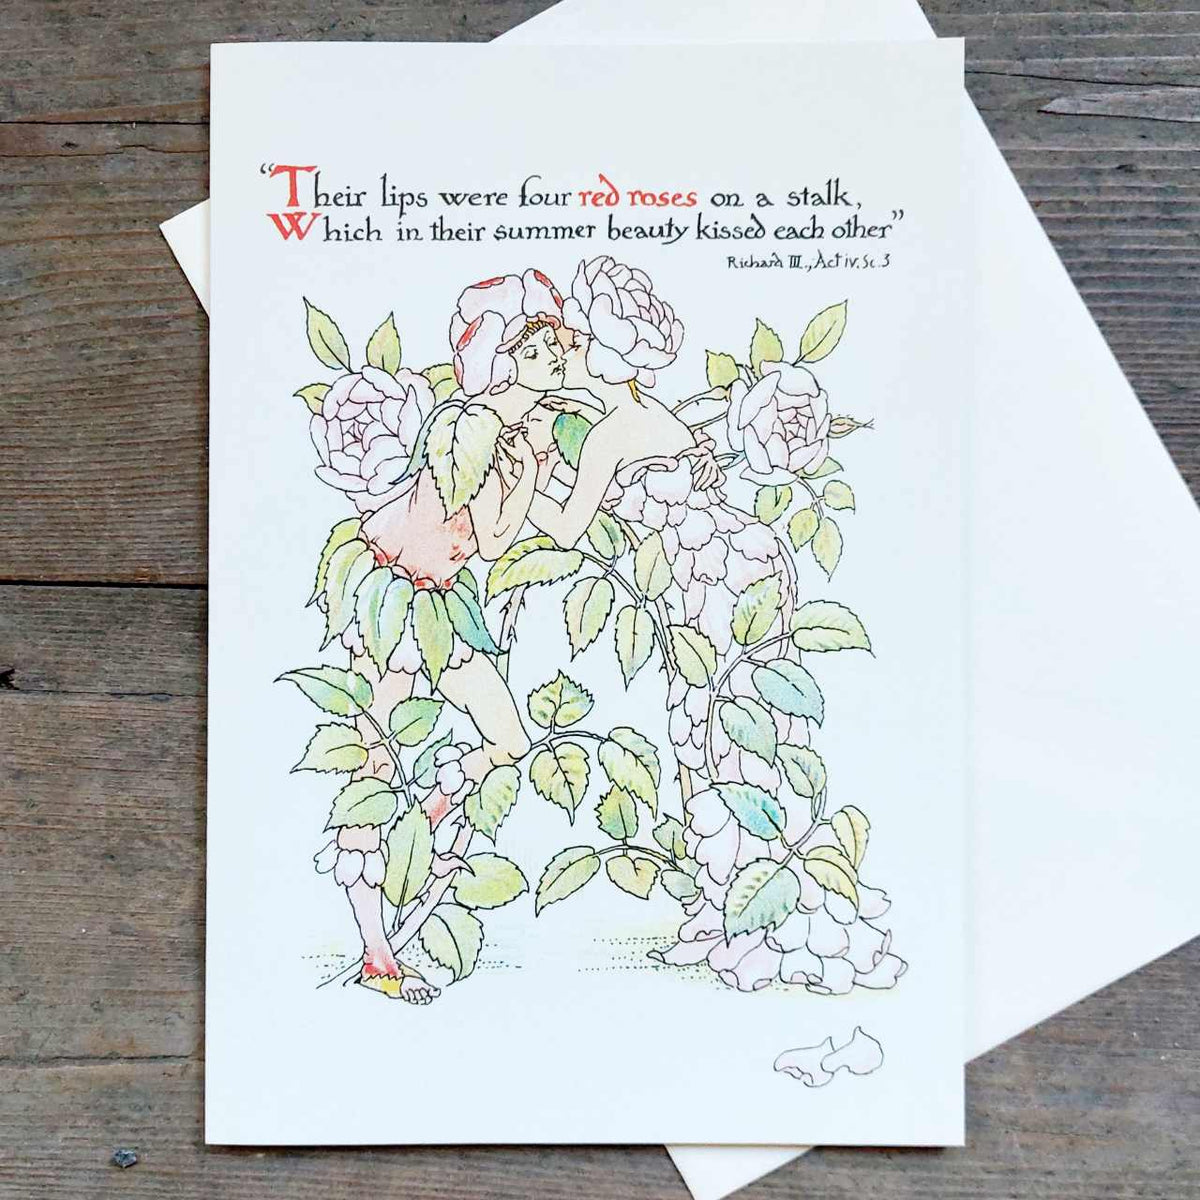 “Their lips were four red roses on a stalk,
Which in their summer beauty kissed each other”
Richard III., Act iv. Sc. 3